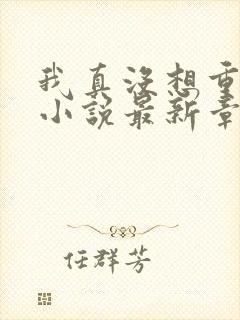 我真没想重
小说最新章
任群芳